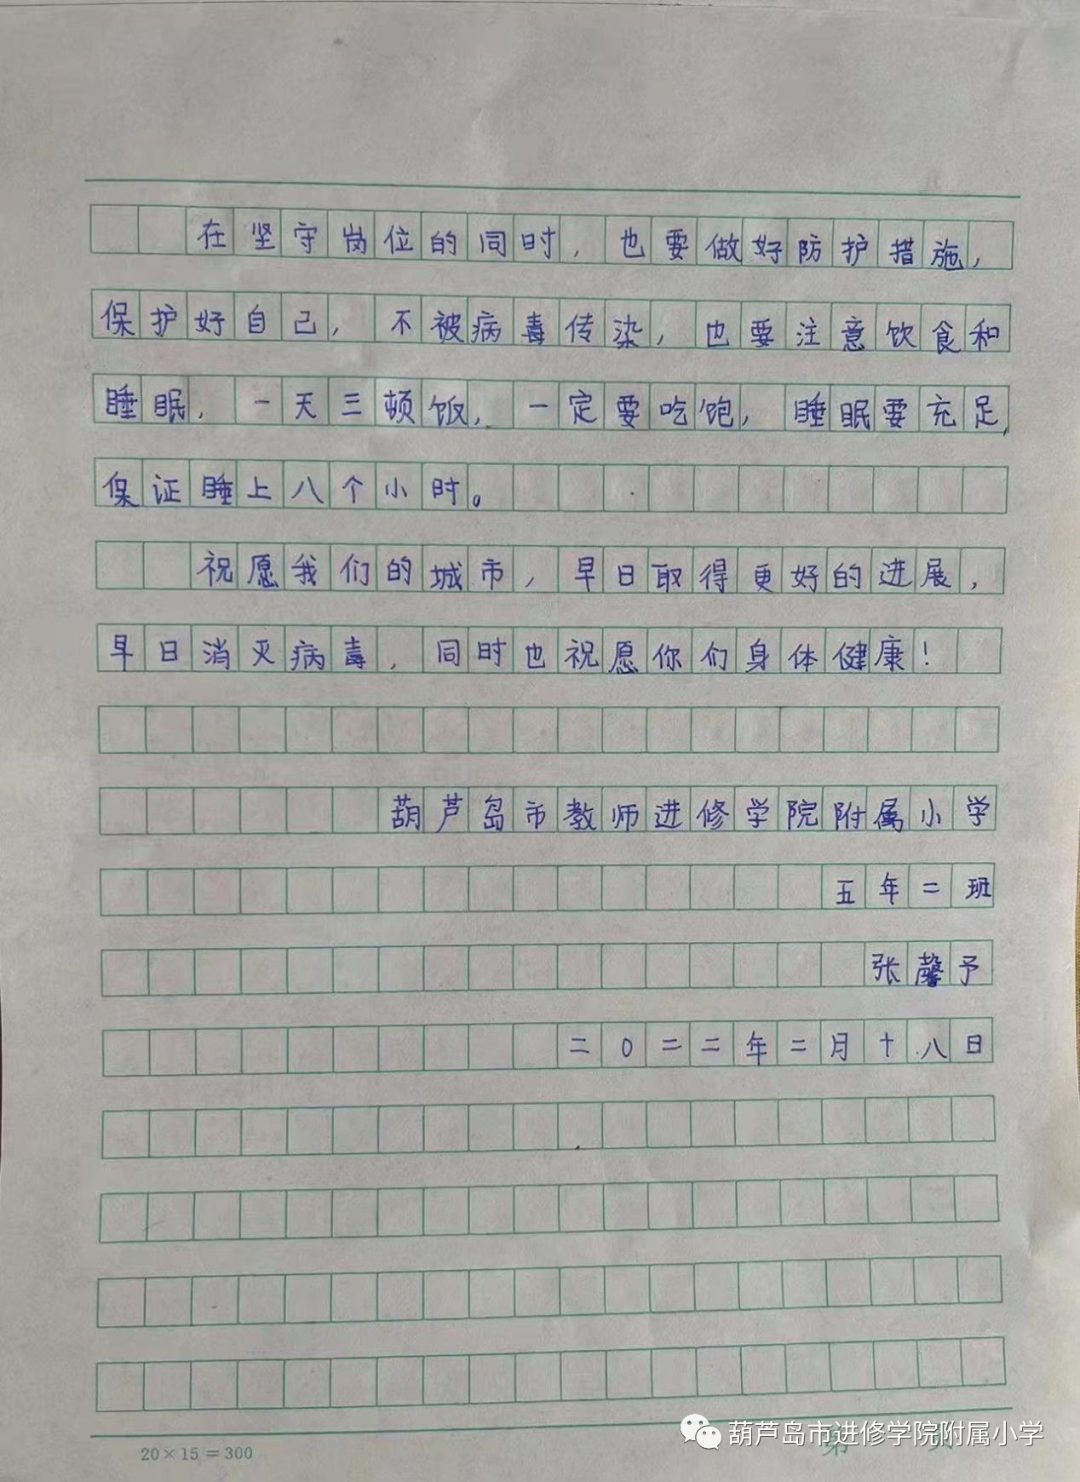 在坚守岗位的同时，也要做好防护措施，
保护好自己，不被病毒传染，也要注意饮食和
睡眠，一天三顿饭，一定要吃饱，睡眠要充足，
保证睡上八个小时。
祝愿我们的城市，早日取得更好的进展，
早日消灭病毒，同时也祝愿你们身体健康！
葫芦岛市教师进修学院附属小学
五年二班
张馨予
二0二二年二月十八日
20×15=300
第 页
葫芦岛市进修学院附属小学